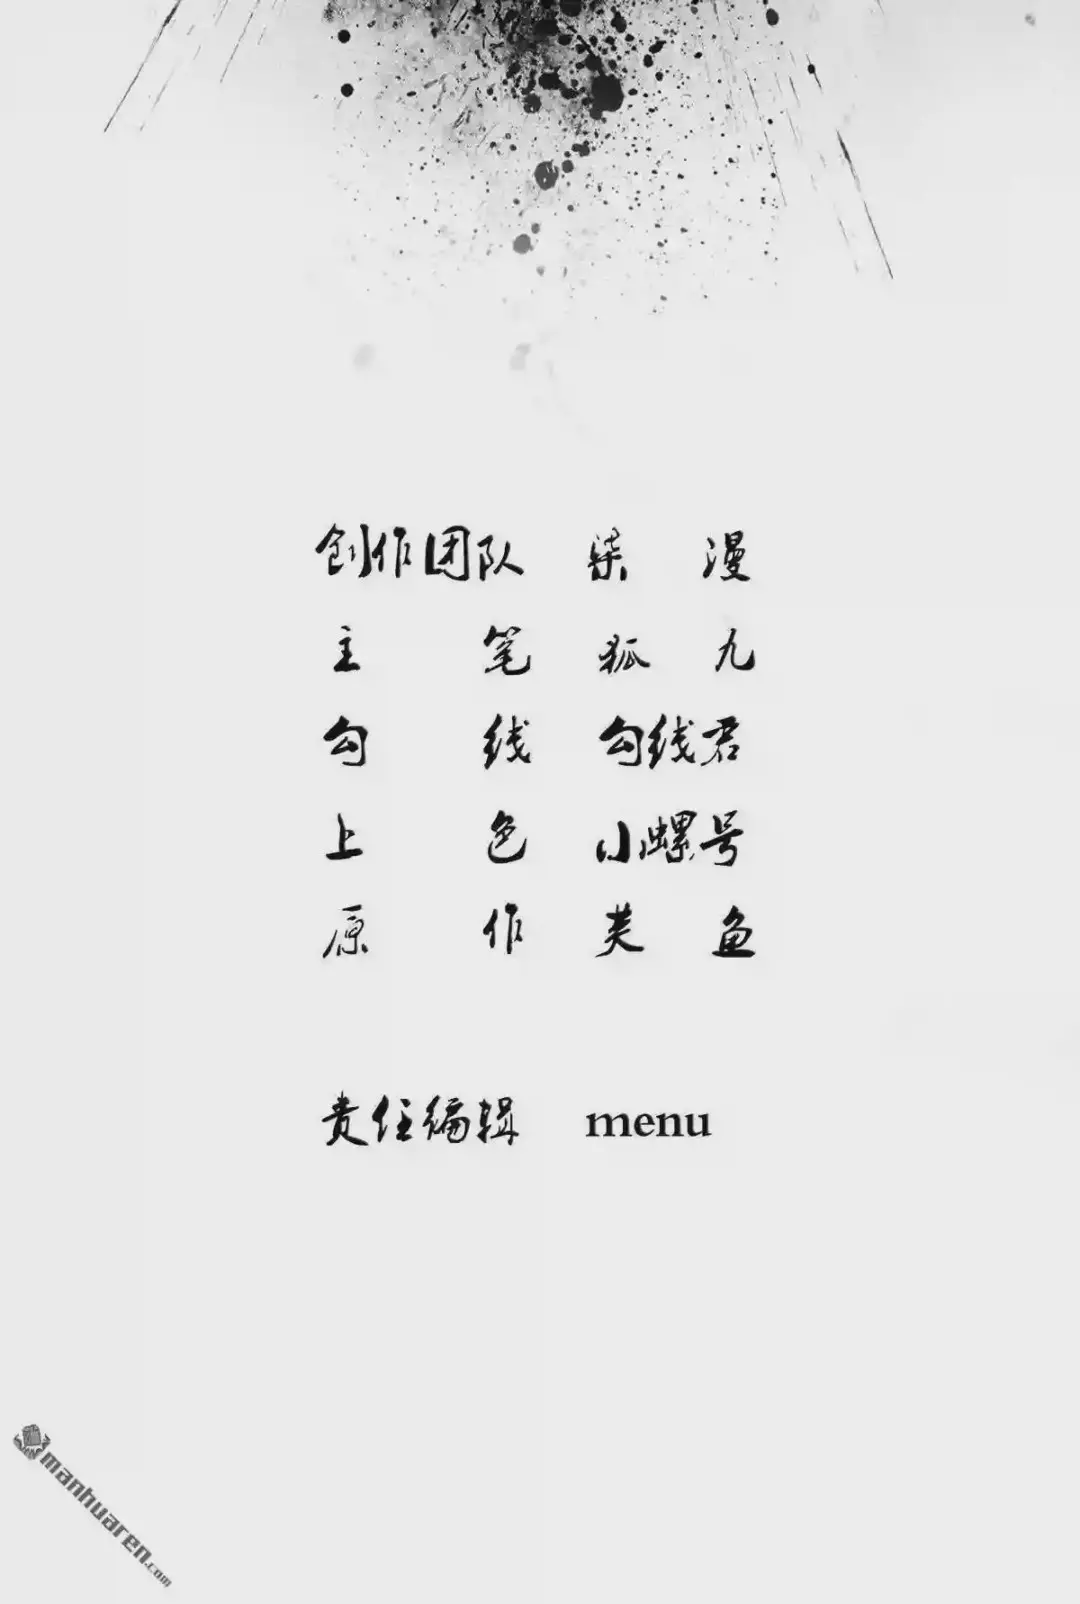 创作团队 柒 漫
主 笔 狐 九
勾 线 勾线君
上 色 小螺号
原 作 芙 鱼
责任编辑 menu
manhuaren.com